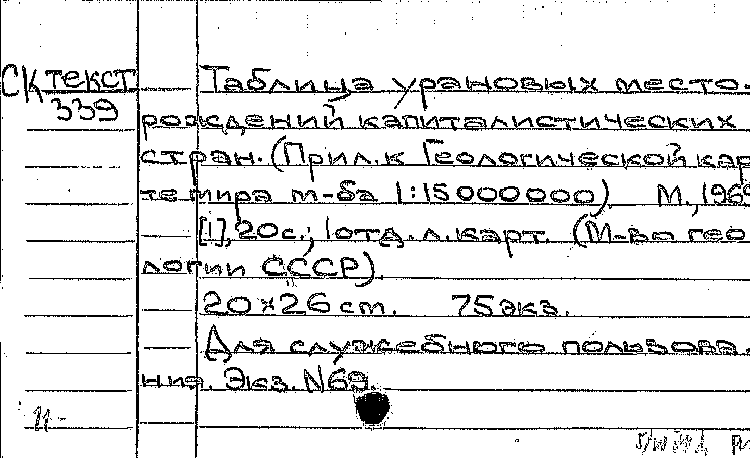 СК текст Таблица урановых место-
339 рождений капиталистических
стран. (Прил. к Геологической кар
те мира м-ба 1:15000000). М., 1969
[1], 20 с.; 1 отд. л. карт. (М-во гео
логии СССР).
20×26 cm. 75 экз.
Для служебного пользова-
ния. Экз. N69.
11-